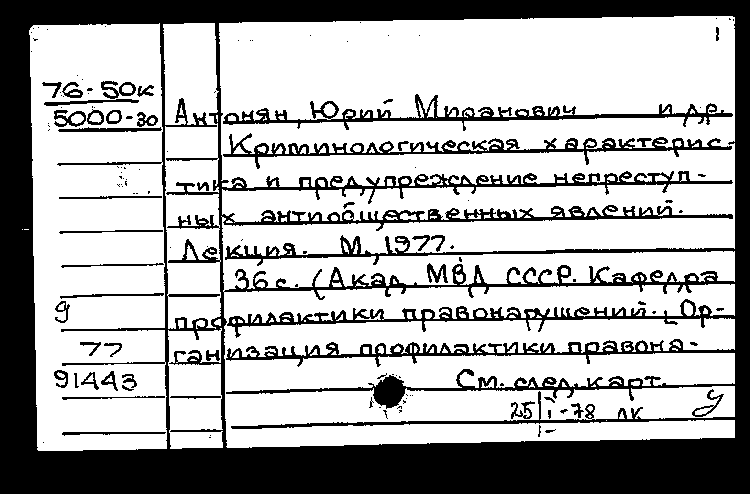 1
76-50к
5000-30 Антонян, Юрий Миранович и др.
Криминологическая характерис-
тика и предупреждение непреступ-
ных антиобщественных явлений.
Лекция. М., 1977.
36 с. (Акад. МВД СССР. Кафедра
9 профилактики правонарушений. [Ор-
77 ганизация профилактики правона-
91443 См. след. карт.
25/I-78 лк У